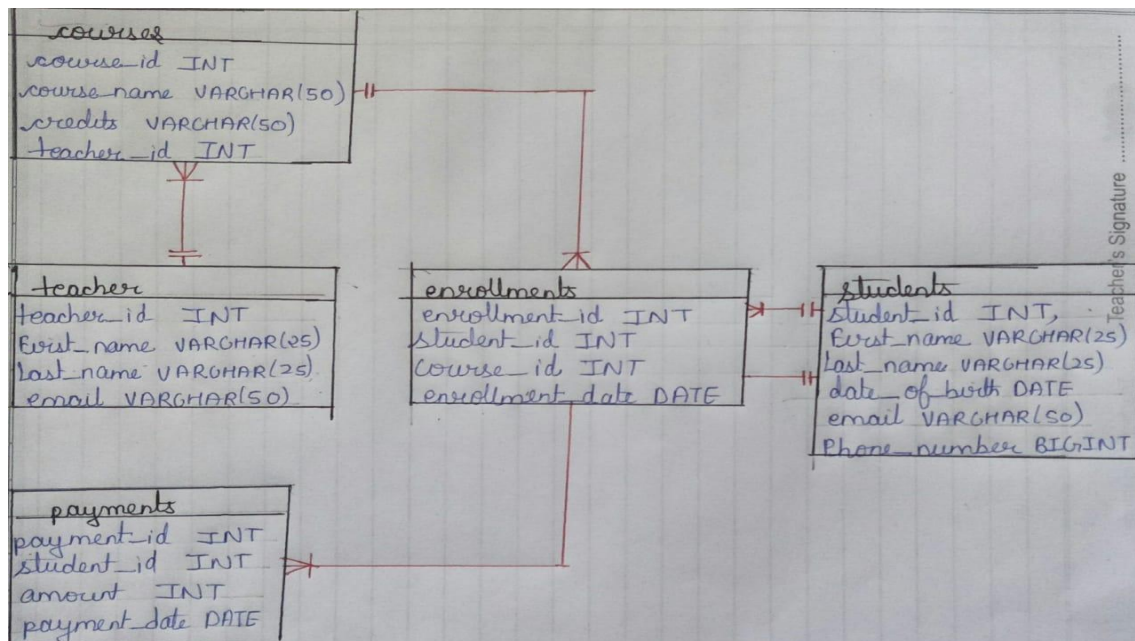 courses
course_id INT
course_name VARCHAR(50)
credits VARCHAR(50)
teacher_id INT
teacher
teacher_id INT
First_name VARCHAR(25)
Last_name VARCHAR(25)
email VARCHAR(50)
enrollments
enrollment_id INT
student_id INT
course_id INT
enrollment_date DATE
students
student_id INT,
First_name VARCHAR(25)
Last_name VARCHAR(25)
date_of_birth DATE
email VARCHAR(50)
Phone_number BIGINT
payments
payment_id INT
student_id INT
amount INT
payment_date DATE
Teacher's Signature